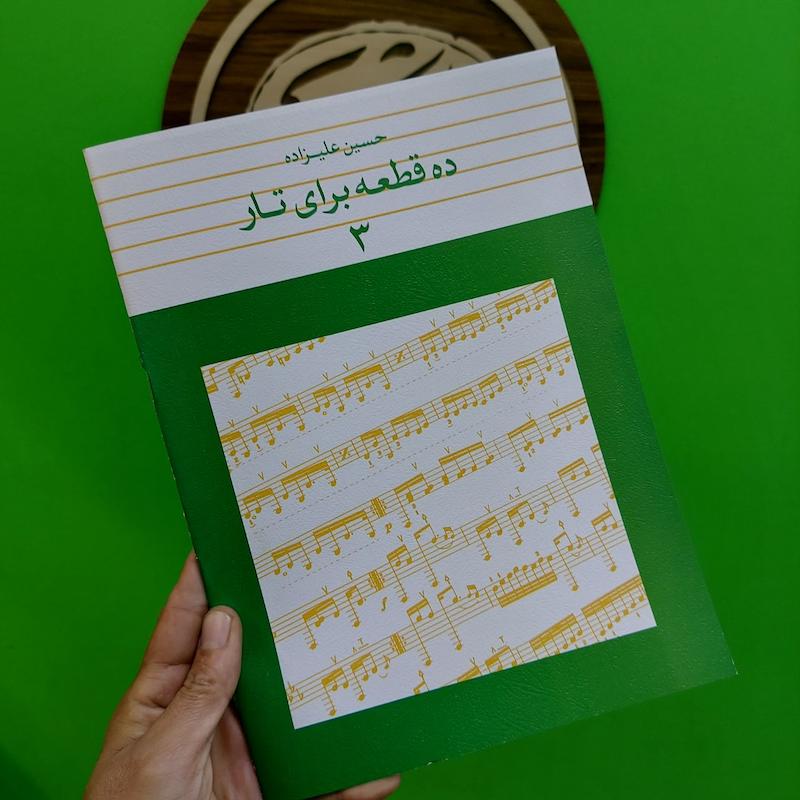 حسین علیـزاده
ده قطعه برای تـار
۳